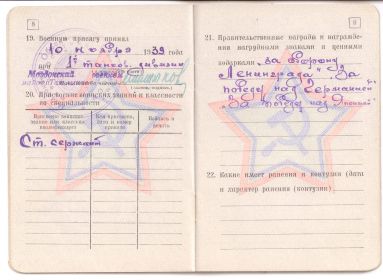 8
19. Военную присягу принял
10 ноября 1939 года
при 1й танков. дивизии
Моздокский
20. Присвоение воинских званий и классности
по специальности
Ст. сержант
9
21. Правительственные награды и награждения
нагрудными знаками и ценными
подарками за оборону
Ленинграда" "За
победу над Германией
"За победу над Японией"
22. Какие имеет ранения и контузии (дата
и характер ранения (контузии)